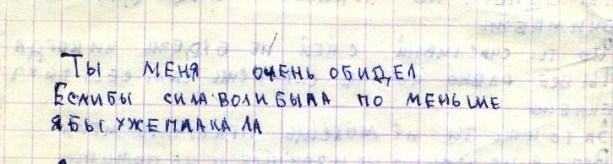 Ты меня очень обидел
Еслибы сила воли была по меньше
я бы уже плакала